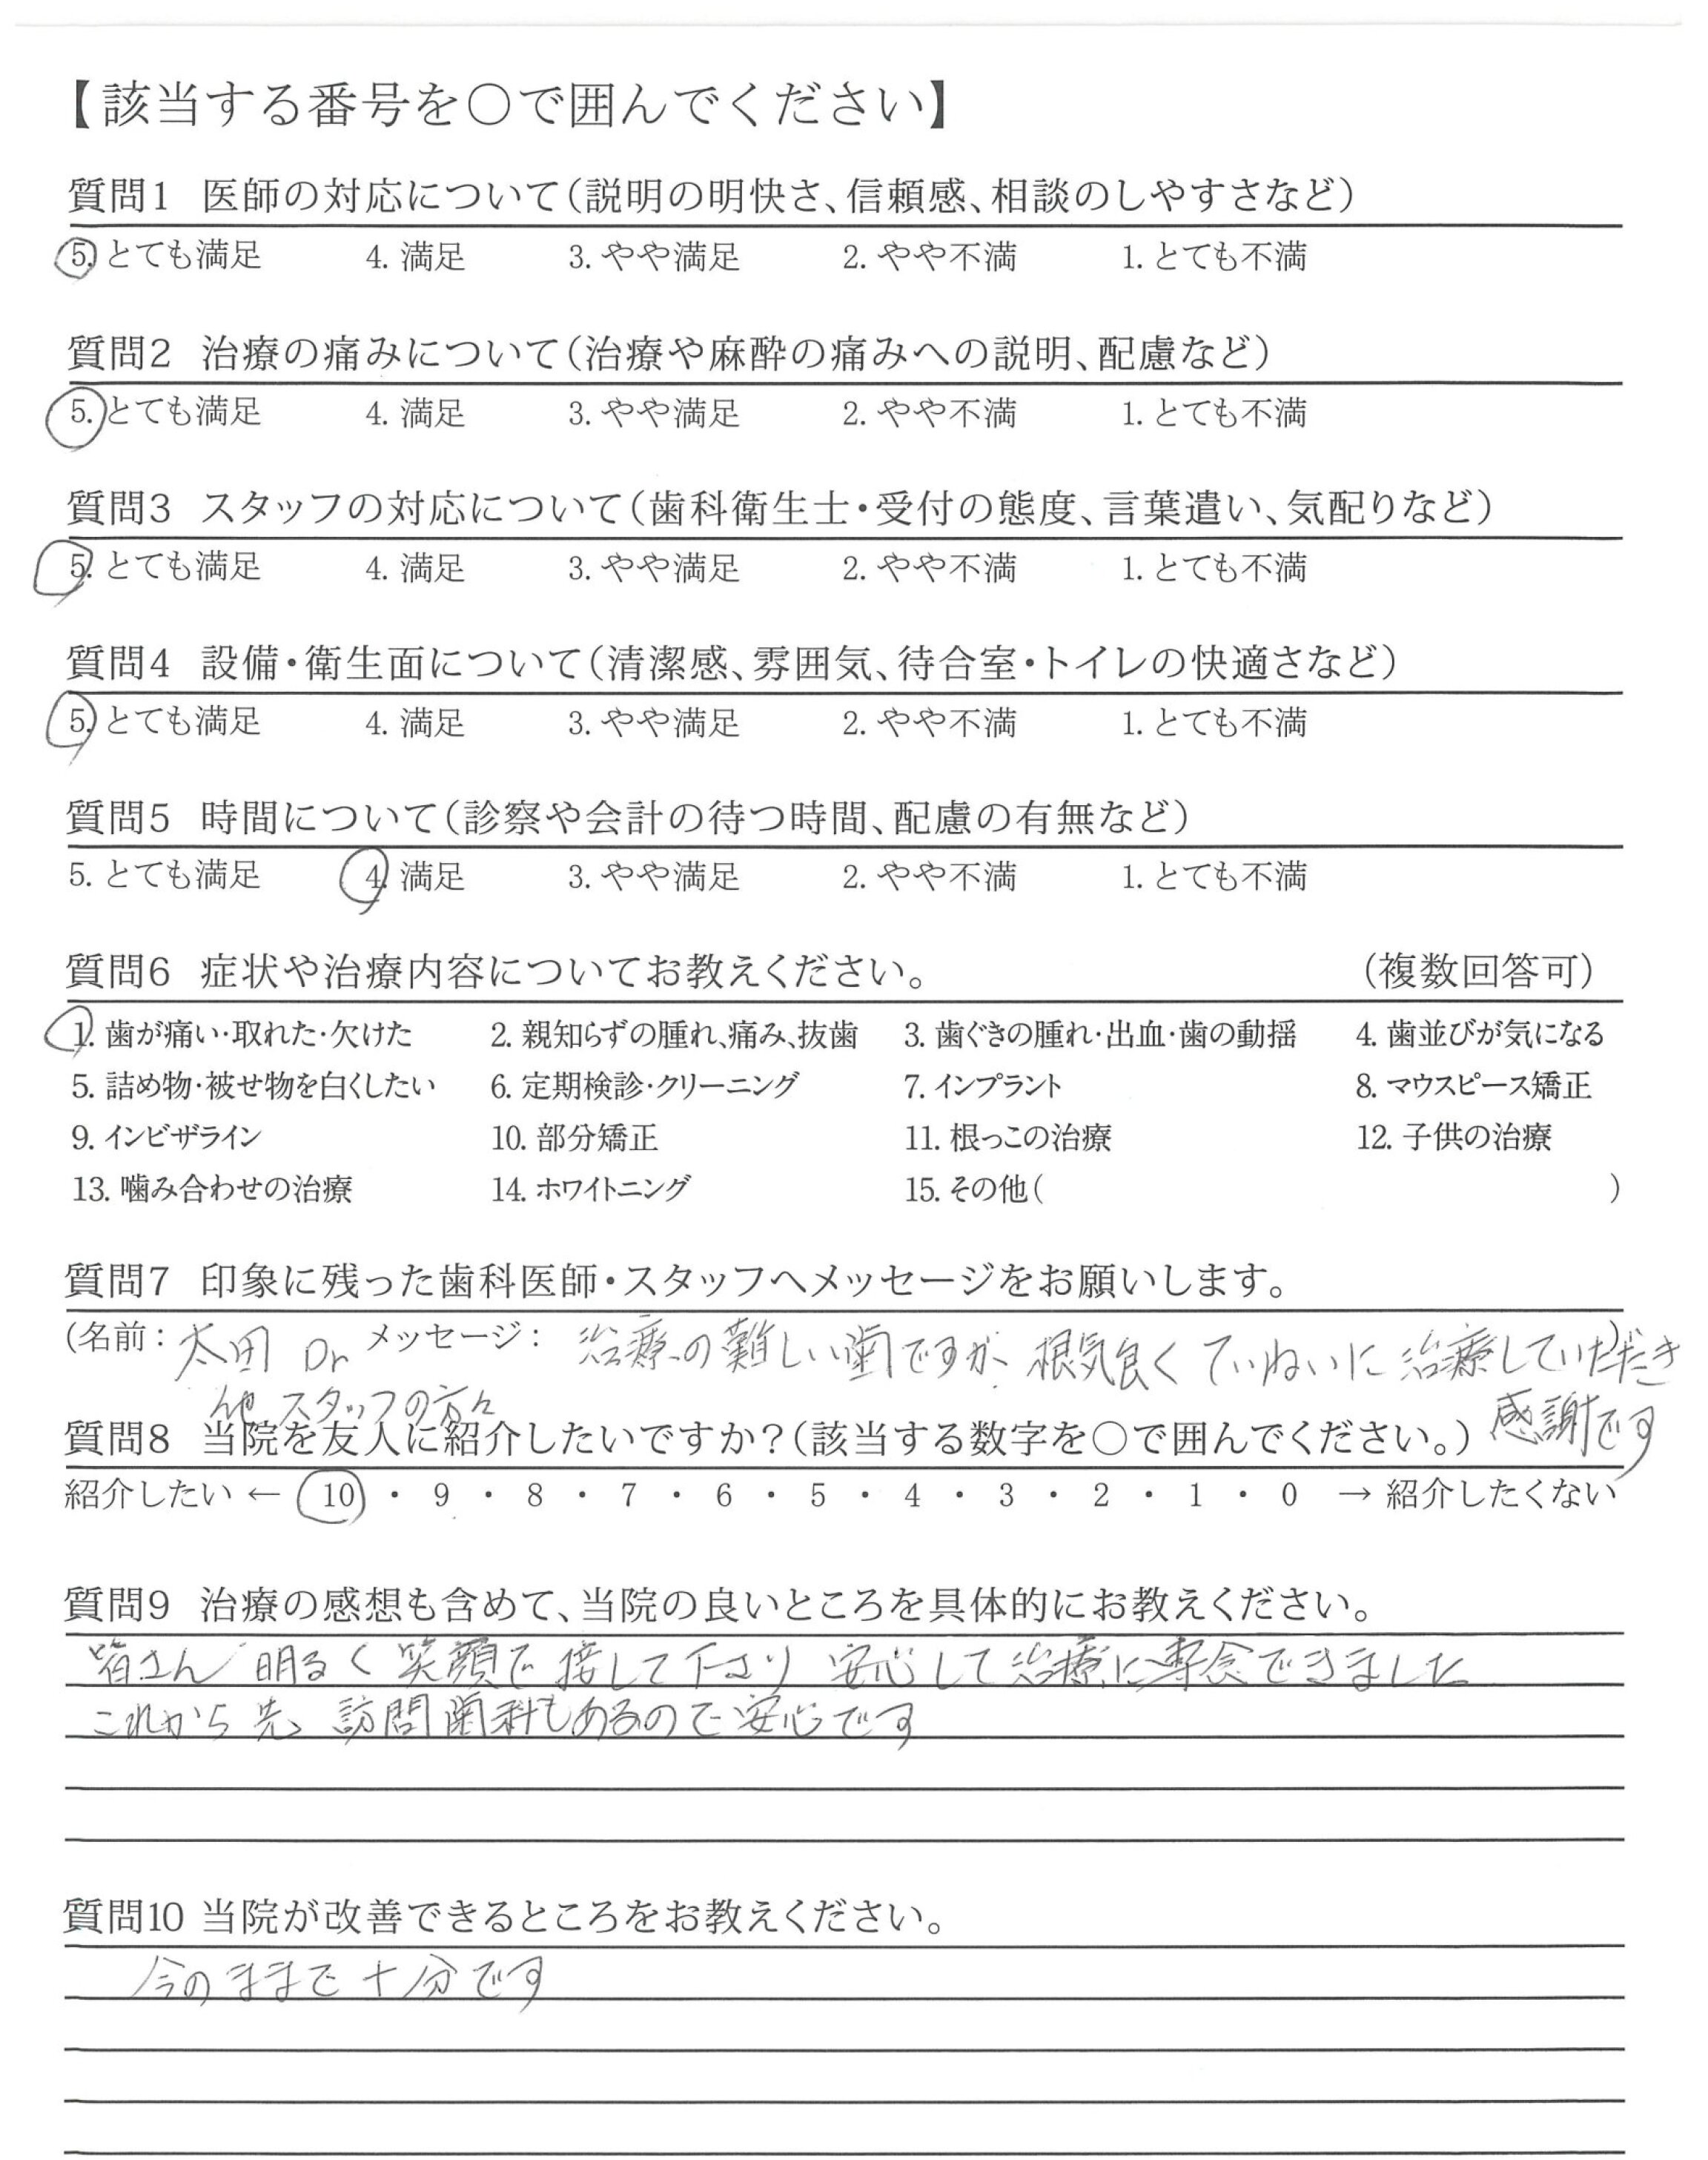 【該当する番号を○で囲んでください】
質問1 医師の対応について(説明の明快さ、信頼感、相談のしやすさなど)
5. とても満足 4. 満足 3. やや満足 2. やや不満 1. とても不満
質問2 治療の痛みについて(治療や麻酔の痛みへの説明、配慮など)
5. とても満足 4. 満足 3. やや満足 2. やや不満 1. とても不満
質問3 スタッフの対応について(歯科衛生士・受付の態度、言葉遣い、気配りなど)
5. とても満足 4. 満足 3. やや満足 2. やや不満 1. とても不満
質問4 設備・衛生面について(清潔感、雰囲気、待合室・トイレの快適さなど)
5. とても満足 4. 満足 3. やや満足 2. やや不満 1. とても不満
質問5 時間について(診察や会計の待つ時間、配慮の有無など)
5. とても満足 4. 満足 3. やや満足 2. やや不満 1. とても不満
質問6 症状や治療内容についてお教えください。 (複数回答可)
1. 歯が痛い・取れた・欠けた 2. 親知らずの腫れ、痛み、抜歯 3. 歯ぐきの腫れ・出血・歯の動揺 4. 歯並びが気になる
5. 詰め物・被せ物を白くしたい 6. 定期検診・クリーニング 7. インプラント 8. マウスピース矯正
9. インビザライン 10. 部分矯正 11. 根っこの治療 12. 子供の治療
13. 噛み合わせの治療 14. ホワイトニング 15. その他( )
質問7 印象に残った歯科医師・スタッフへメッセージをお願いします。
(名前: 太田 Dr メッセージ: 治療の難しい歯ですが、根気良くていねいに治療していただき)
他スタッフの方々 感謝です
質問8 当院を友人に紹介したいですか?(該当する数字を○で囲んでください。)
紹介したい ← 10 ・ 9 ・ 8 ・ 7 ・ 6 ・ 5 ・ 4 ・ 3 ・ 2 ・ 1 ・ 0 → 紹介したくない
質問9 治療の感想も含めて、当院の良いところを具体的にお教えください。
皆さん明るく笑顔で接して下さり 安心して治療に専念できました
これから先、訪問歯科もあるので安心です
質問10 当院が改善できるところをお教えください。
今のままで十分です